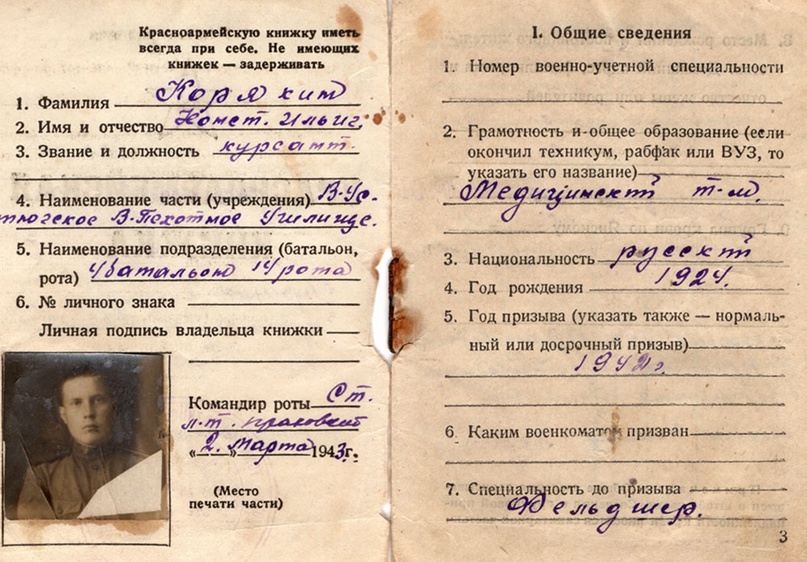 Красноармейскую книжку иметь
всегда при себе. Не имеющих
книжек — задерживать
1. Фамилия Корякин
2. Имя и отчество Конст. Ильич
3. Звание и должность курсант.
4. Наименование части (учреждения) В-Ус-
тюгское В-Пехотное Училище.
5. Наименование подразделения (батальон,
рота) 4 батальон 14 рота
6. № личного знака
Личная подпись владельца книжки
Командир роты Ст.
л-т.
„2„ марта 1943г.
(Место
печати части)
I. Общие сведения
1. Номер военно-учетной специальности
2. Грамотность и общее образование (если
окончил техникум, рабфак или ВУЗ, то
указать его название)
Медицинский т-м.
3. Национальность русский
4. Год рождения 1924.
5. Год призыва (указать также — нормаль-
ный или досрочный призыв)
1942г.
6. Каким военкоматом призван
7. Специальность до призыва
Фельдшер.
3